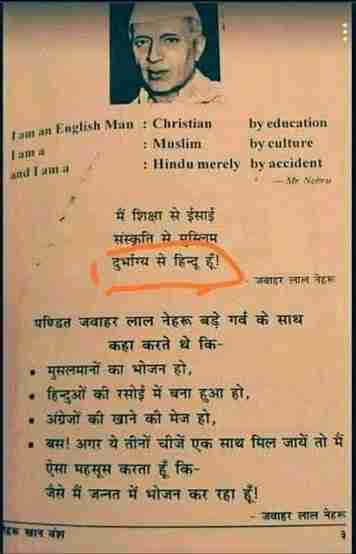 I am an English Man : Christian by education
I am a : Muslim by culture
and I am a : Hindu merely by accident
— Mr Nehru
मैं शिक्षा से ईसाई
संस्कृति से मुस्लिम
दुर्भाग्य से हिन्दू हूँ!
- जवाहर लाल नेहरू
पण्डित जवाहर लाल नेहरू बड़े गर्व के साथ
कहा करते थे कि-
• मुसलमानों का भोजन हो,
• हिन्दुओं की रसोई में बना हुआ हो,
• अंग्रेजों की खाने की मेज हो,
• बस! अगर ये तीनों चीजें एक साथ मिल जायें तो मैं
ऐसा महसूस करता हूँ कि-
जैसे मैं जन्नत में भोजन कर रहा हूँ!
- जवाहर लाल नेहरू
खान वंश
३